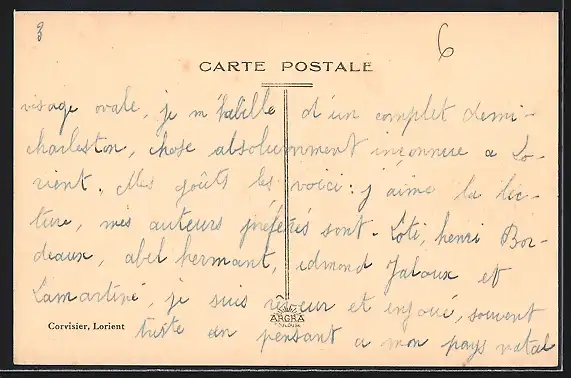 3
6
CARTE POSTALE
visage ovale, je m'habille d'un complet demi-
charleston, chose absolumment inconnue a Lo-
rient. Mes goûts les voici : j'aime la lec-
ture, mes auteurs préférés sont. Loti, henri Bor-
deaux, abel hermant, edmond Jaloux et
Lamartine, je suis rêveur et enjoué, souvent
triste en pensant a mon pays natal
ARGRA
TOULOUSE
Corvisier, Lorient